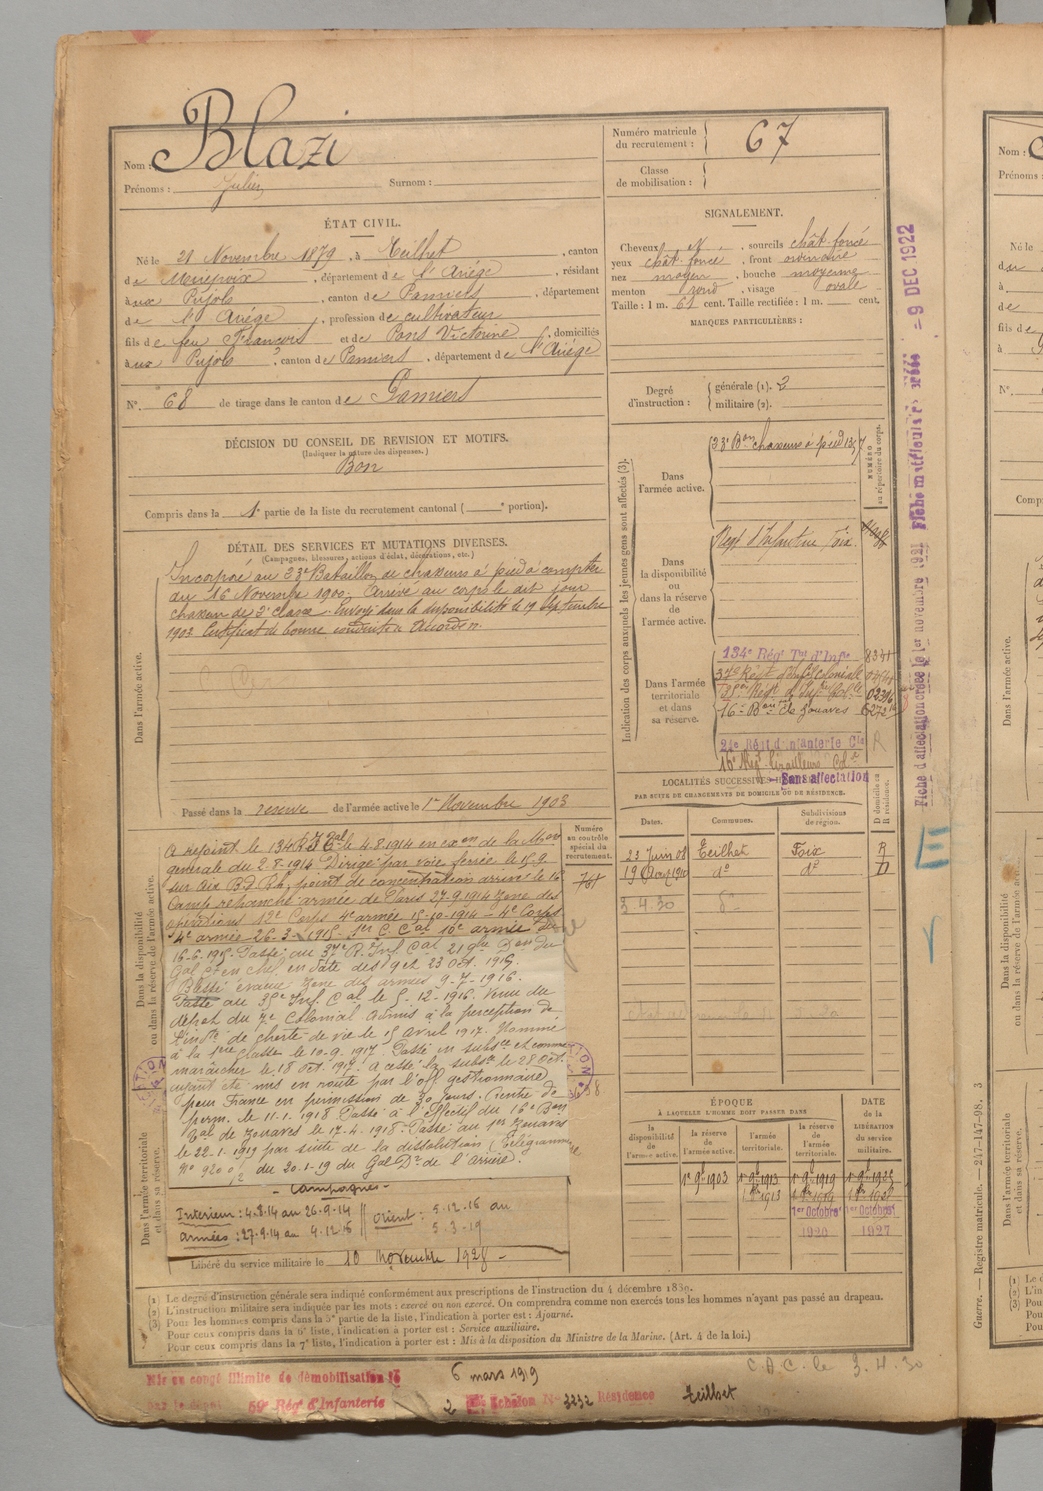 Nom : Blazi
Prénoms : Julien Surnom :
Numéro matricule du recrutement : 67
Classe de mobilisation :
ÉTAT CIVIL.
Né le 21 Novembre 1879, à Teilhet, canton
de Mirepoix, département de l'Ariège, résidant
à aux Pujols, canton de Pamiers, département
de l'Ariège, profession de cultivateur
fils de feu François et de Pons Victorine, domiciliés
à aux Pujols, canton de Pamiers, département de l'Ariège
N° 68 de tirage dans le canton de Pamiers
DÉCISION DU CONSEIL DE REVISION ET MOTIFS.
(Indiquer la nature des dispenses.)
Bon
Compris dans la 1e partie de la liste du recrutement cantonal ( e portion).
SIGNALEMENT.
Cheveux, sourcils chât foncé
yeux chât foncé, front ordinaire
nez moyen, bouche moyenne
menton rond, visage ovale
Taille : 1 m. 61 cent. Taille rectifiée : 1 m. cent.
MARQUES PARTICULIÈRES :
Degré d'instruction : générale (1). 2
militaire (2).
DÉTAIL DES SERVICES ET MUTATIONS DIVERSES.
(Campagnes, blessures, actions d'éclat, décorations, etc.)
Dans l'armée active.
Incorporé au 23e Bataillon de chasseurs à pied à compter
du 16 Novembre 1900. Arrivé au corps le dit jour
chasseur de 2e classe. Envoyé dans la disponibilité le 19 Septembre
1903. Certificat de bonne conduite Accordé.
Passé dans la réserve de l'armée active le 1er Novembre 1903
Indication des corps auxquels les jeunes gens sont affectés (3).
NUMÉRO au répertoire du corps.
Dans l'armée active.
23e Bon chasseurs à pied
Dans la disponibilité ou dans la réserve de l'armée active.
Regt d'Infanterie Foix.
Dans l'armée territoriale et dans sa réserve.
134e Régt Tal d'Infie 8341
37e Régt d'Inf. Coloniale
16e Bon de Zouaves
21e Régt d'Infanterie Cle R
16e Régt Tirailleurs Col.
Sans affectation
LOCALITÉS SUCCESSIVES
PAR SUITE DE CHANGEMENTS DE DOMICILE OU DE RÉSIDENCE.
Dates. Communes. Subdivisions de région. D domicile ou R résidence.
23 Juin 08 Teilhet Foix R
19 Août 1910 do do D
3.4.30 do
Dans la disponibilité ou dans la réserve de l'armée active.
Numéro au contrôle spécial du recrutement.
761
A rejoint le 134 R I Tal le 4.8.1914 en exon de la Mon
générale du 2.8.1914. Dirigé par voie ferrée le 15.9
sur Aix B.D.Rh, point de concentration arrivé le 16
Camp retranché armée de Paris 27.9.1914 Zone des
opérations 12e Corps 4e armée 15-10-1914 - 4e Corps
4e armée 26.3-1915. 1er C. Cal 10e armée
16-6-1915. Passé au 37e R. Inf. Cal
Gal et en chef, en date des 9 et 23 Oct. 1915.
Blessé évacué zone des armées 9-7-1916.
Passé au 35e Inf. Cal le 5-12-1916. Venu du
dépôt du 7e Colonial. Admis à la perception de
l'indté de cherté de vie le 15 avril 1917. Nommé
à la 1ère classe le 10-9-1917. Passé en subsce et comme
maraîcher le 18 Oct. 1917. A cessé la subsce le 28 Oct.
ayant été mis en route par l'off. gestionnaire
pour France en permission de 30 jours. Rentré de
perm. le 11-1-1918. Passé à l'Effectif du 16e Bon
Tal de Zouaves le 17-4-1918. Passé au 1er Zouaves
le 22-1-1919 par suite de la dissolution (Télégramme
N° 9200 du 20-1-19 du Gal Dr de l'arrière.
Dans l'armée territoriale et dans sa réserve.
- Campagnes -
Intérieur : 4-8-14 au 26-9-14 // Orient : 5-12-16 au
Armées : 27-9-14 au 4-12-16 5-3-19
Libéré du service militaire le 10 Novembre 1928
ÉPOQUE À LAQUELLE L'HOMME DOIT PASSER DANS
DATE de la LIBÉRATION du service militaire.
la disponibilité de l'armée active. la réserve de l'armée active. l'armée territoriale. la réserve de l'armée territoriale.
1903 1913 1919 1925
1er Octobre 1er Octobre
1920 1927
(1) Le degré d'instruction générale sera indiqué conformément aux prescriptions de l'instruction du 4 décembre 1889.
(2) L'instruction militaire sera indiquée par les mots : exercé ou non exercé. On comprendra comme non exercés tous les hommes n'ayant pas passé au drapeau.
(3) Pour les hommes compris dans la 5e partie de la liste, l'indication à porter est : Ajourné.
Pour ceux compris dans la 6e liste, l'indication à porter est : Service auxiliaire.
Pour ceux compris dans la 7e liste, l'indication à porter est : Mis à la disposition du Ministre de la Marine. (Art. 4 de la loi.)
Mis en congé illimité de démobilisation le 6 mars 1919
par le dépôt 59e Régt d'Infanterie 2 Echelon N° 3232 Résidence Teilhet
C.A.C. le 3.4.30
- 9 DEC 1922
Fiche d'affectation créée le 1er novembre 1921
Guerre. — Registre matricule. — 247-147-98. 3